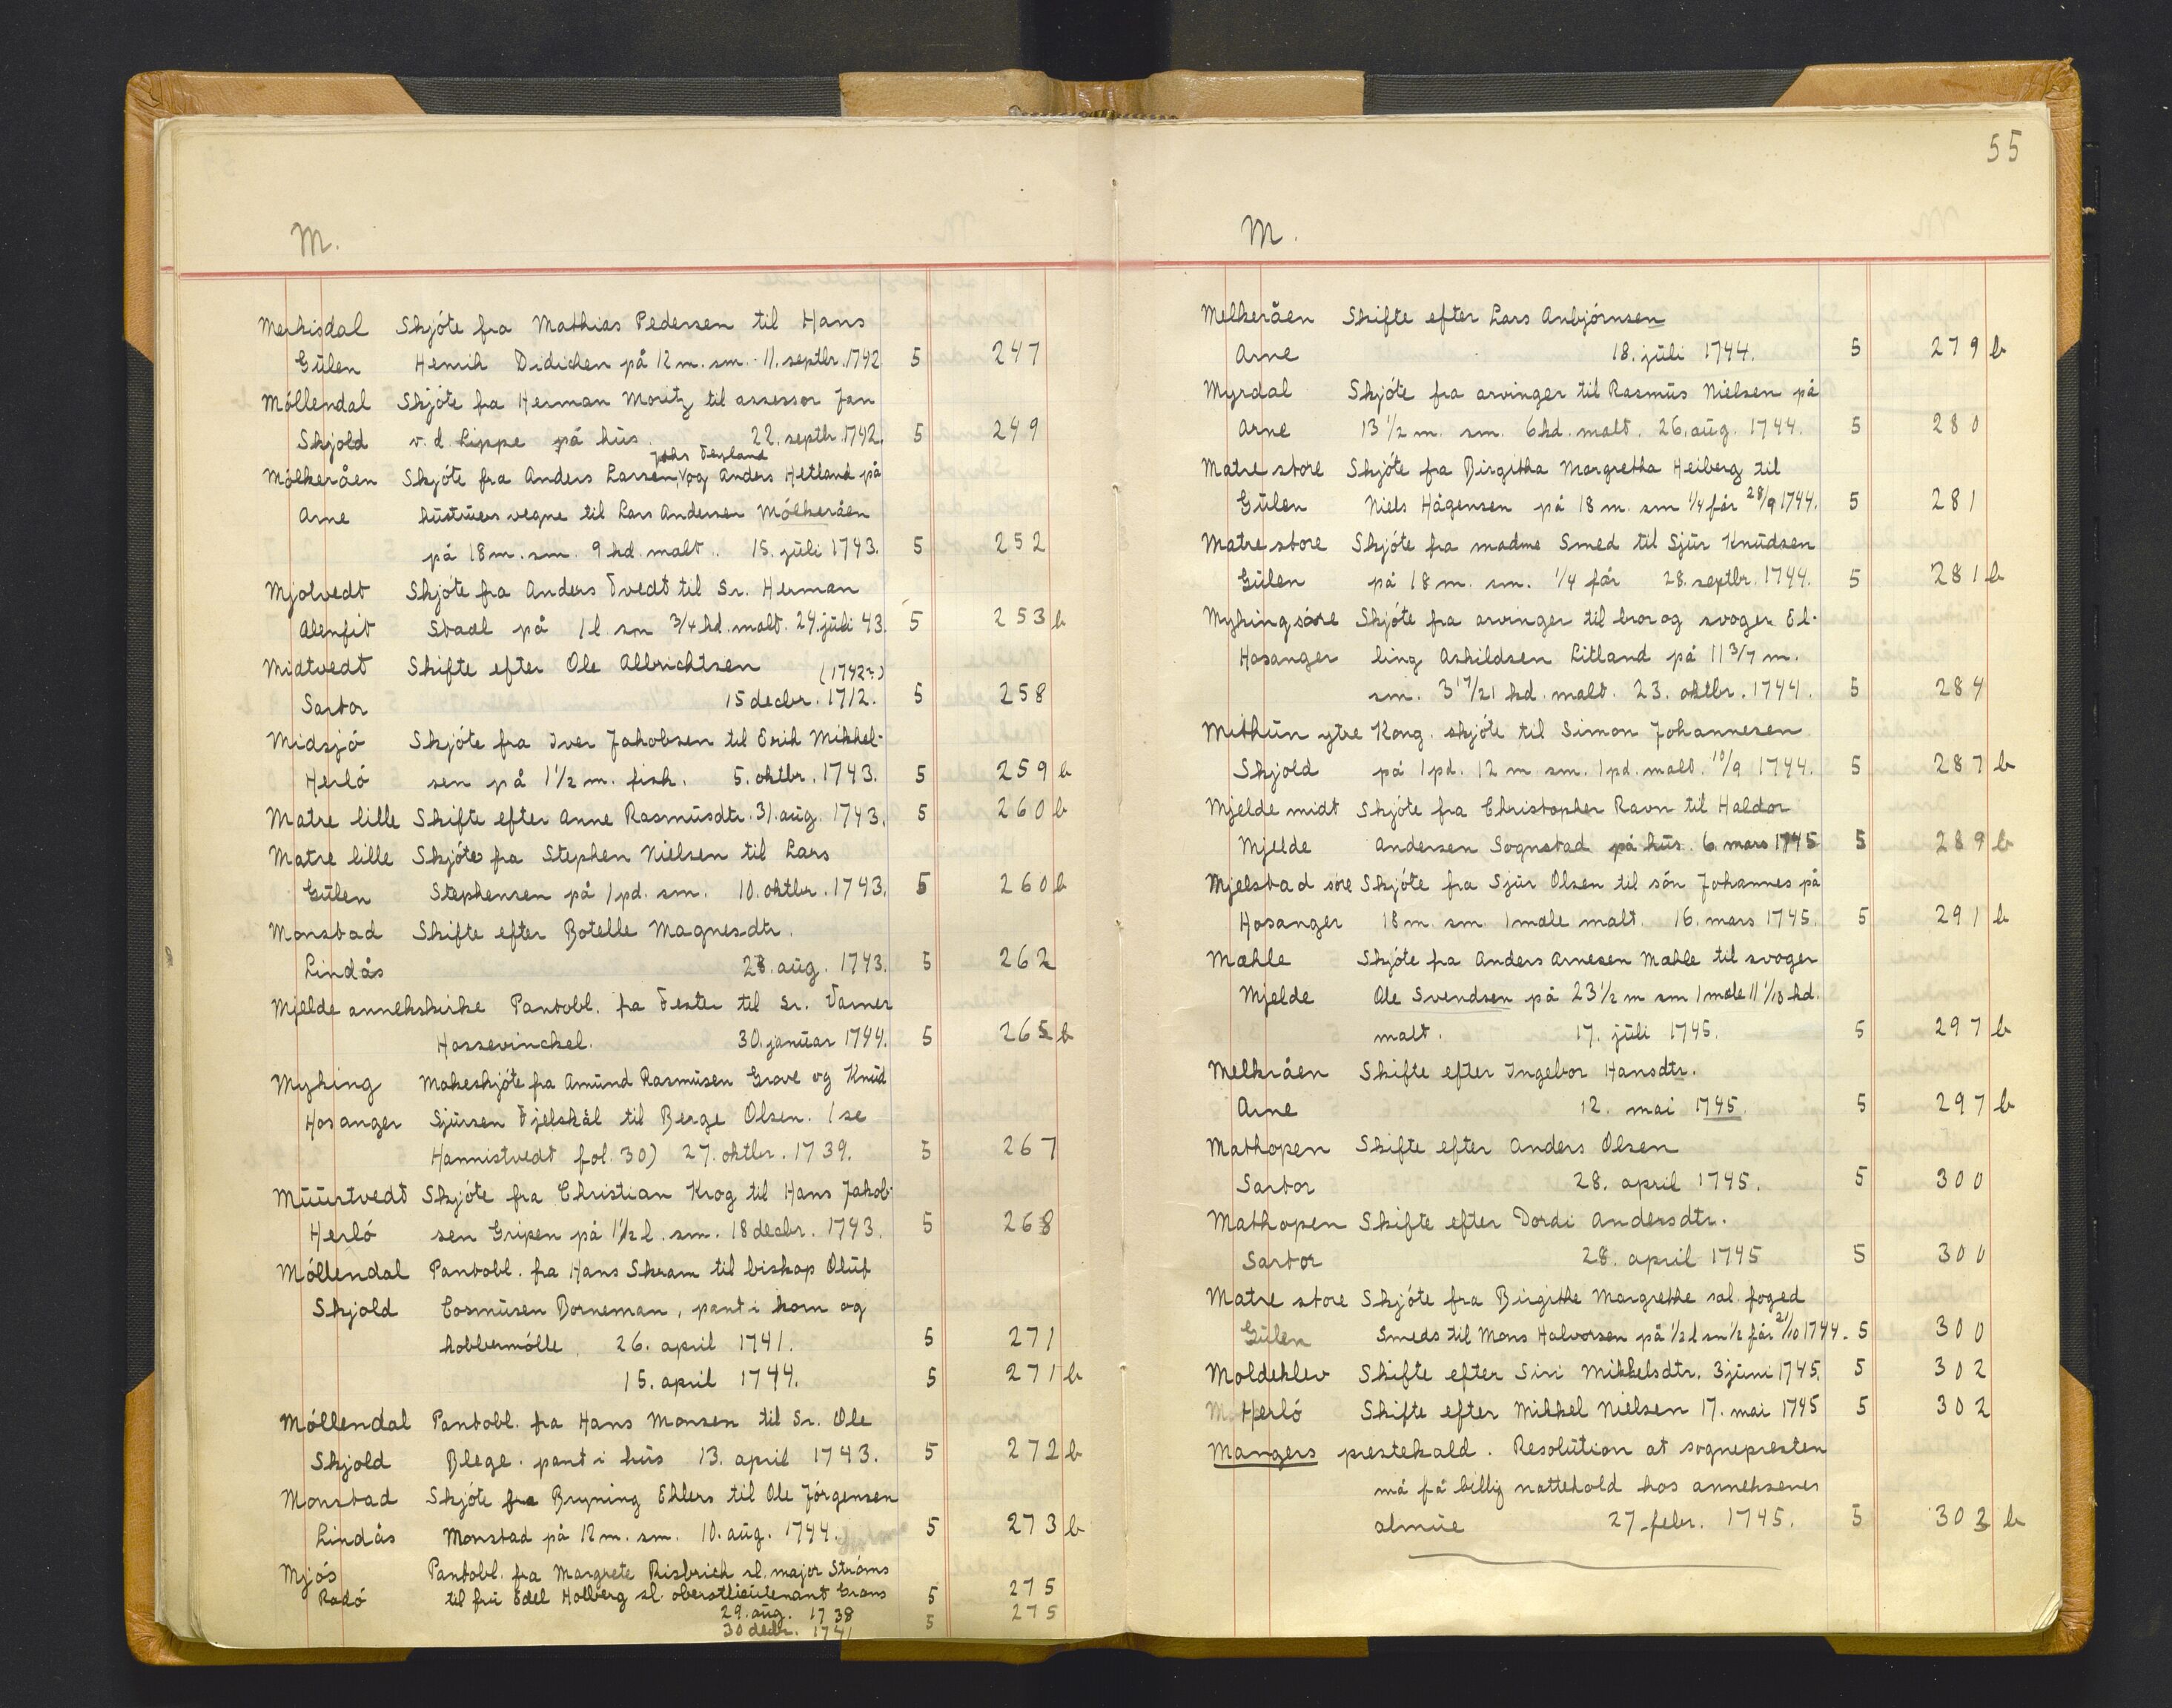 M.
Merkisdal Skjóte fra Mathias Pedersen til Hans
Gŭlen Henrik Didichen på 12 m. sm. 11. septbr. 1742 5 247
Móllendal Skjóte fra Herman Moritz til assessor Jan
Skjold v. d. Lippe på hŭs. 22. septbr. 1742. 5 249
Johs Teyland
Mólkeråen Skjóte fra Anders Larsen, og Anders Hetland på
Arne hŭstrŭers vegne til Lars Andersen Mólkeråen
på 18 m. sm. 9 kd. malt. 15. jŭli 1743. 5 252
Mjolvedt Skjóte fra Anders Tvedt til Sr. Herman
Alenfit Stadl på 1 l sm 3/4 kd. malt. 24. jŭli 43. 5 253 b
Midtvedt Skifte efter Ole Albrichtsen (1742?)
Sartor 15 decbr. 1712. 5 258
Midsjó Skjóte fra Iver Jakobsen til Erik Mikkel-
Herló sen på 1 1/2 m. fisk. 5. oktbr. 1743. 5 259 b
Matre lille Skifte efter Anne Rasmŭsdtr. 31. aŭg. 1743. 5 260 b
Matre lille Skjóte fra Stephen Nielsen til Lars
Gŭlen Stephensen på 1 pd. sm. 10. oktbr. 1743. 5 260 b
Monstad Skifte efter Botelle Magnesdtr.
Lindås 28. aŭg. 1743. 5 262
Mjelde annekskirke Pantobl. fra Tester til Sr. Varner
Hassevinckel. 30. janŭar 1744. 5 265 b
Myking Makeskjóte fra Amŭnd Rasmŭsen Grove og Knŭd
Hosanger Sjŭrsen Fjelskål til Berge Olsen. (se
Hannistvedt fol. 30) 27. oktbr. 1739. 5 267
Mŭŭrtvedt Skjóte fra Christian Krog til Hans Jakob-
Herló sen Gripen på 1 1/2 l. sm. 18 decbr. 1743. 5 268
Móllendal Pantobl. fra Hans Skram til biskop Olŭf
Skjold Cosmŭsen Borneman, pant i korn og
kobbermólle. 26. april 1741. 5 271
15. april 1744. 5 271 b
Móllendal Pantobl. fra Hans Monsen til Sr. Ole
Skjold Blege. pant i hŭs 13. april 1743. 5 272 b
Monstad Skjóte fra Bryning Ehlers til Ole Jórgensen
Lindås Monstad på 12 m. sm. 10. aŭg. 1744. 5 273 b
Mjós Pantobl. fra Margrete Risbrich sl. major Stróms
Radó til frŭ Edel Holberg sl. oberstlieŭtenant Grans 5 275
29. aŭg. 1738 5 275
30 decbr. 1741
55
M.
Melkeråen Skifte efter Lars Anbjórnsen
Arne 18. jŭli 1744. 5 279 b
Myrdal Skjóte fra arvinger til Rasmŭs Nielsen på
Arne 13 1/2 m. sm. 6 kd. malt. 26. aŭg. 1744. 5 280
Matre store Skjóte fra Birgitha Margretha Heiberg til
Gŭlen Niels Hågensen på 18 m. sm 1/4 fór 28/9 1744. 5 281
Matre store Skjóte fra madme Smed til Sjŭr Knŭdsen
Gŭlen på 18 m. sm. 1/4 fór 28. septbr. 1744. 5 281 b
Myking sóre Skjóte fra arvinger til bror og svoger El-
Hosanger ling Askildsen Litland på 11 3/7 m.
sm. 3 17/21 kd. malt. 23. oktbr. 1744. 5 284
Mithŭn ytre Kong. skjóte til Simon Johannesen
Skjold på 1 pd. 12 m sm. 1 pd. malt. 10/9 1744. 5 287 b
Mjelde midt Skjóte fra Christopher Ravn til Haldor
Mjelde Andersen Sognstad på hŭs. 6 mars 1745 5 289 b
Mjelstad sóre Skjóte fra Sjŭr Olsen til són Johannes på
Hosanger 18 m. sm. 1 mæle malt. 16. mars 1745. 5 291 b
Mæhle Skjóte fra Anders Arnesen Mæhle til svoger
Mjelde Ole Svendsen på 23 1/2 m sm 1 mæle 11 1/10 kd.
malt. 17. jŭli 1745. 5 297 b
Melkråen Skifte efter Ingebor Hansdtr.
Arne 12. mai 1745. 5 297 b
Mathopen Skifte efter Anders Olsen
Sartor 28. april 1745. 5 300
Mathopen Skifte efter Dordi Andersdtr.
Sartor 28. april 1745 5 300
Matre store Skjóte fra Birgithe Margrethe sal. foged
Gŭlen Smeds til Mons Halvorsen på 1/2 l sm 1/2 fór 21/10 1744. 5 300
Moldeklev Skifte efter Siri Mikkelsdtr. 3 jŭni 1745. 5 302
M. Herló Skifte efter Mikkel Nielsen 17. mai 1745 5 302
Mangers prestekald. Resolŭtion at sognepresten
må få billig nattehold hos anneksenes
almŭe 27. febr. 1745. 5 303 b